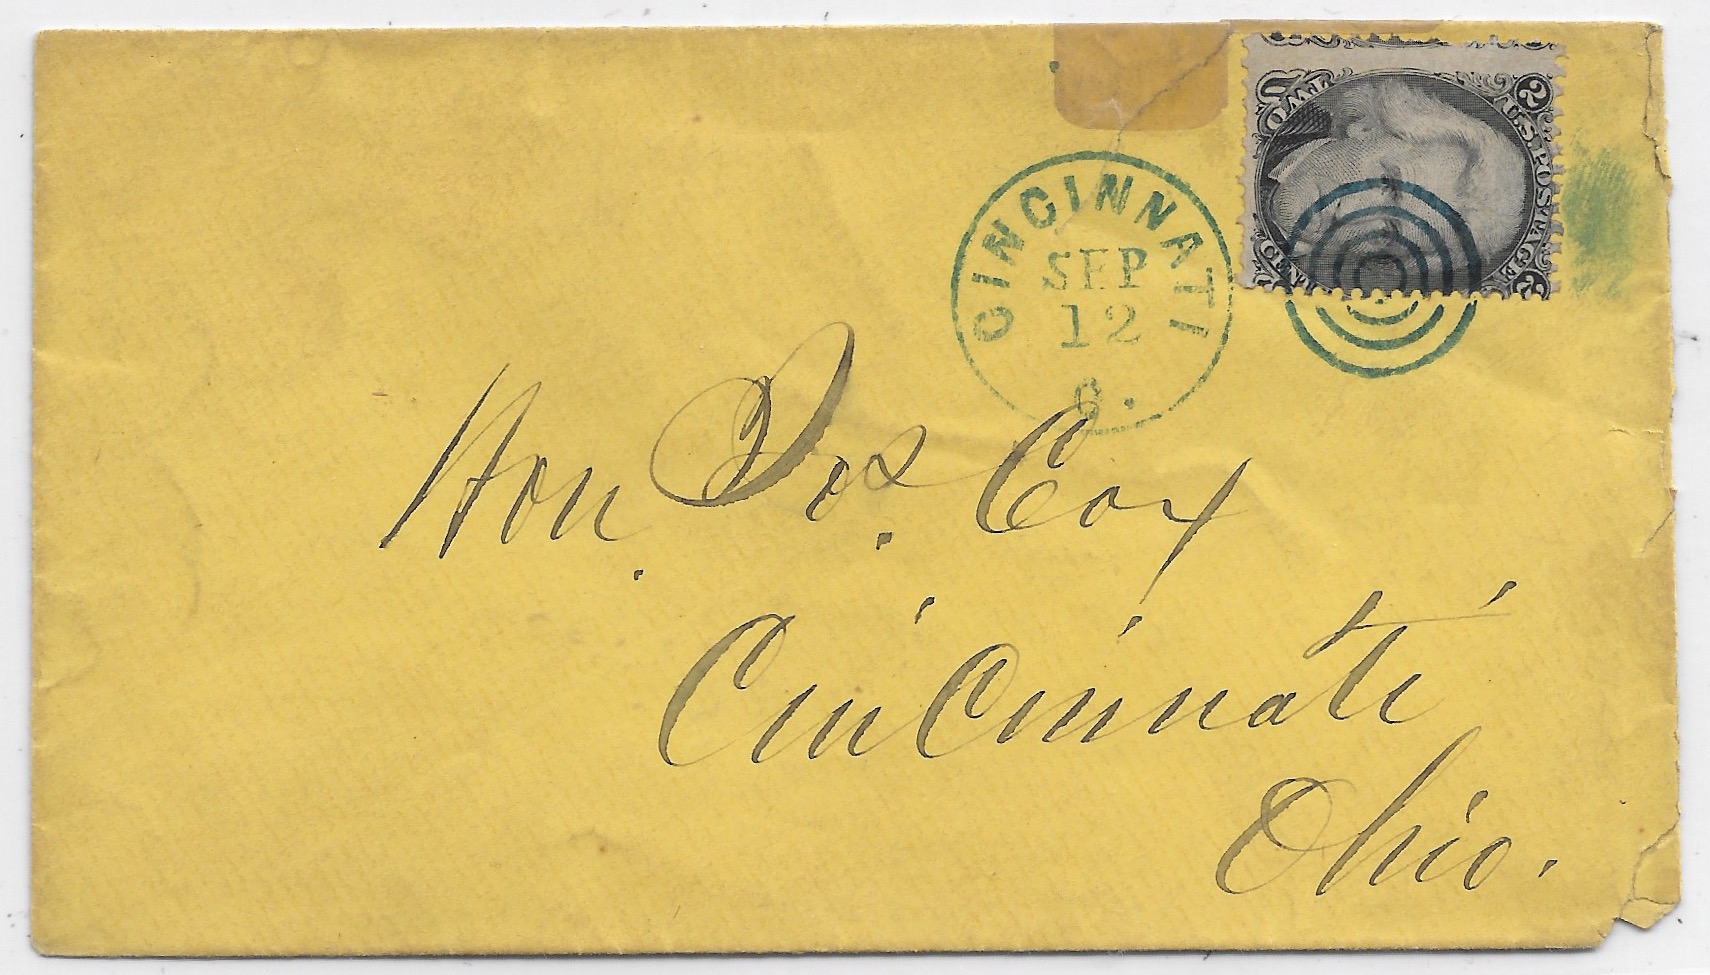 CINCINNATI
SEP
12
O.
U.S. POSTAGE
2 2
TWO CENT
Hon. Jos. Cox
Cincinnati
Ohio.